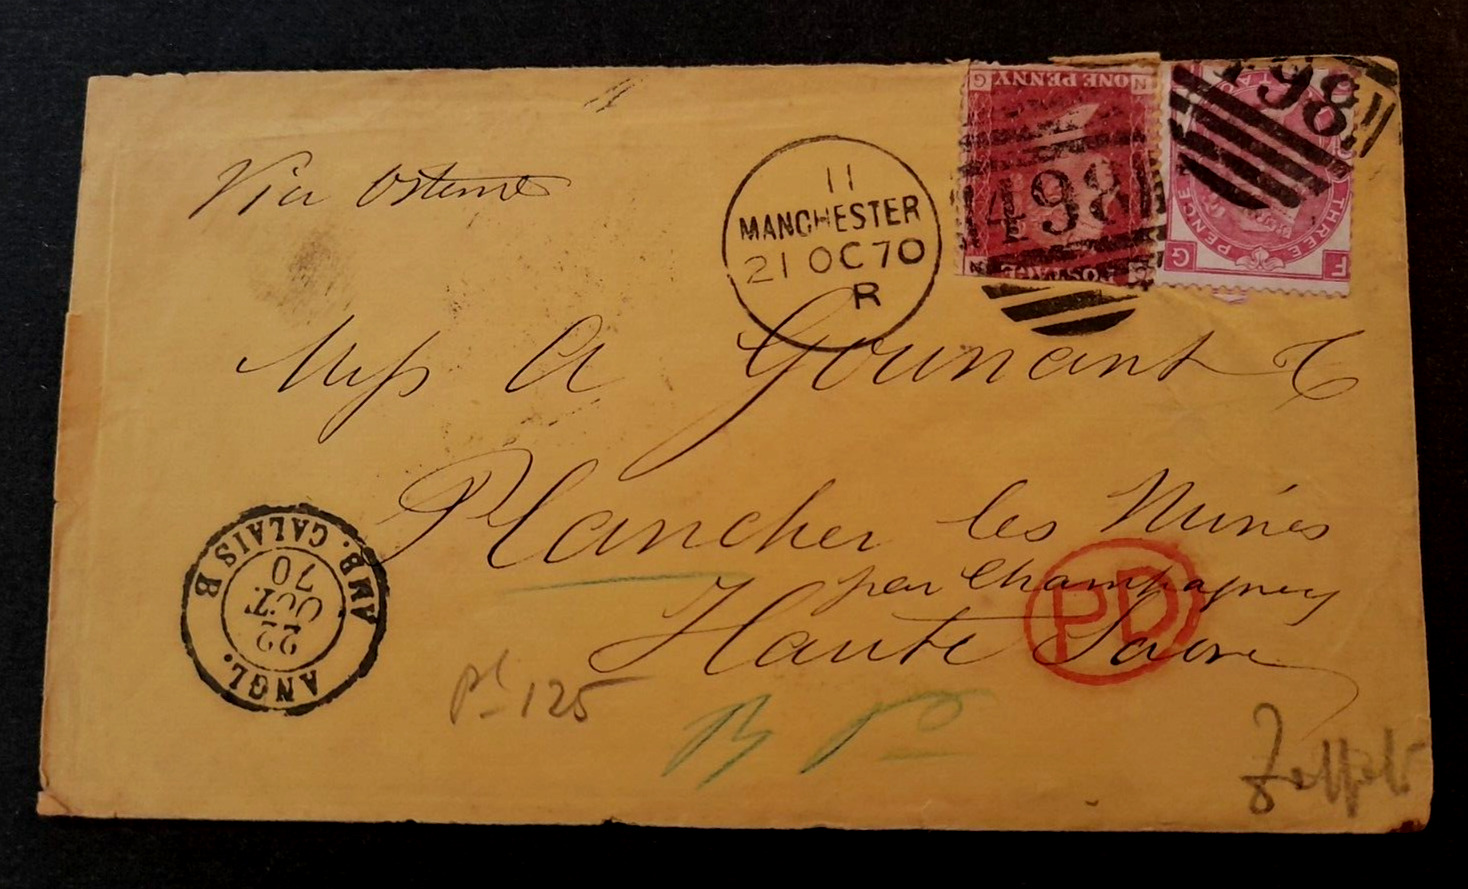 Via Ostend
11
MANCHESTER
21 OC 70
R
G ONE PENNY N
498
POSTAGE
498
THREE PENCE
G F
Mess A Gournant &
Plancher les Mines
par Champagney
Haute Saone
PD
ANGL. AMB. CALAIS B
22
OCT.
70
pl 125